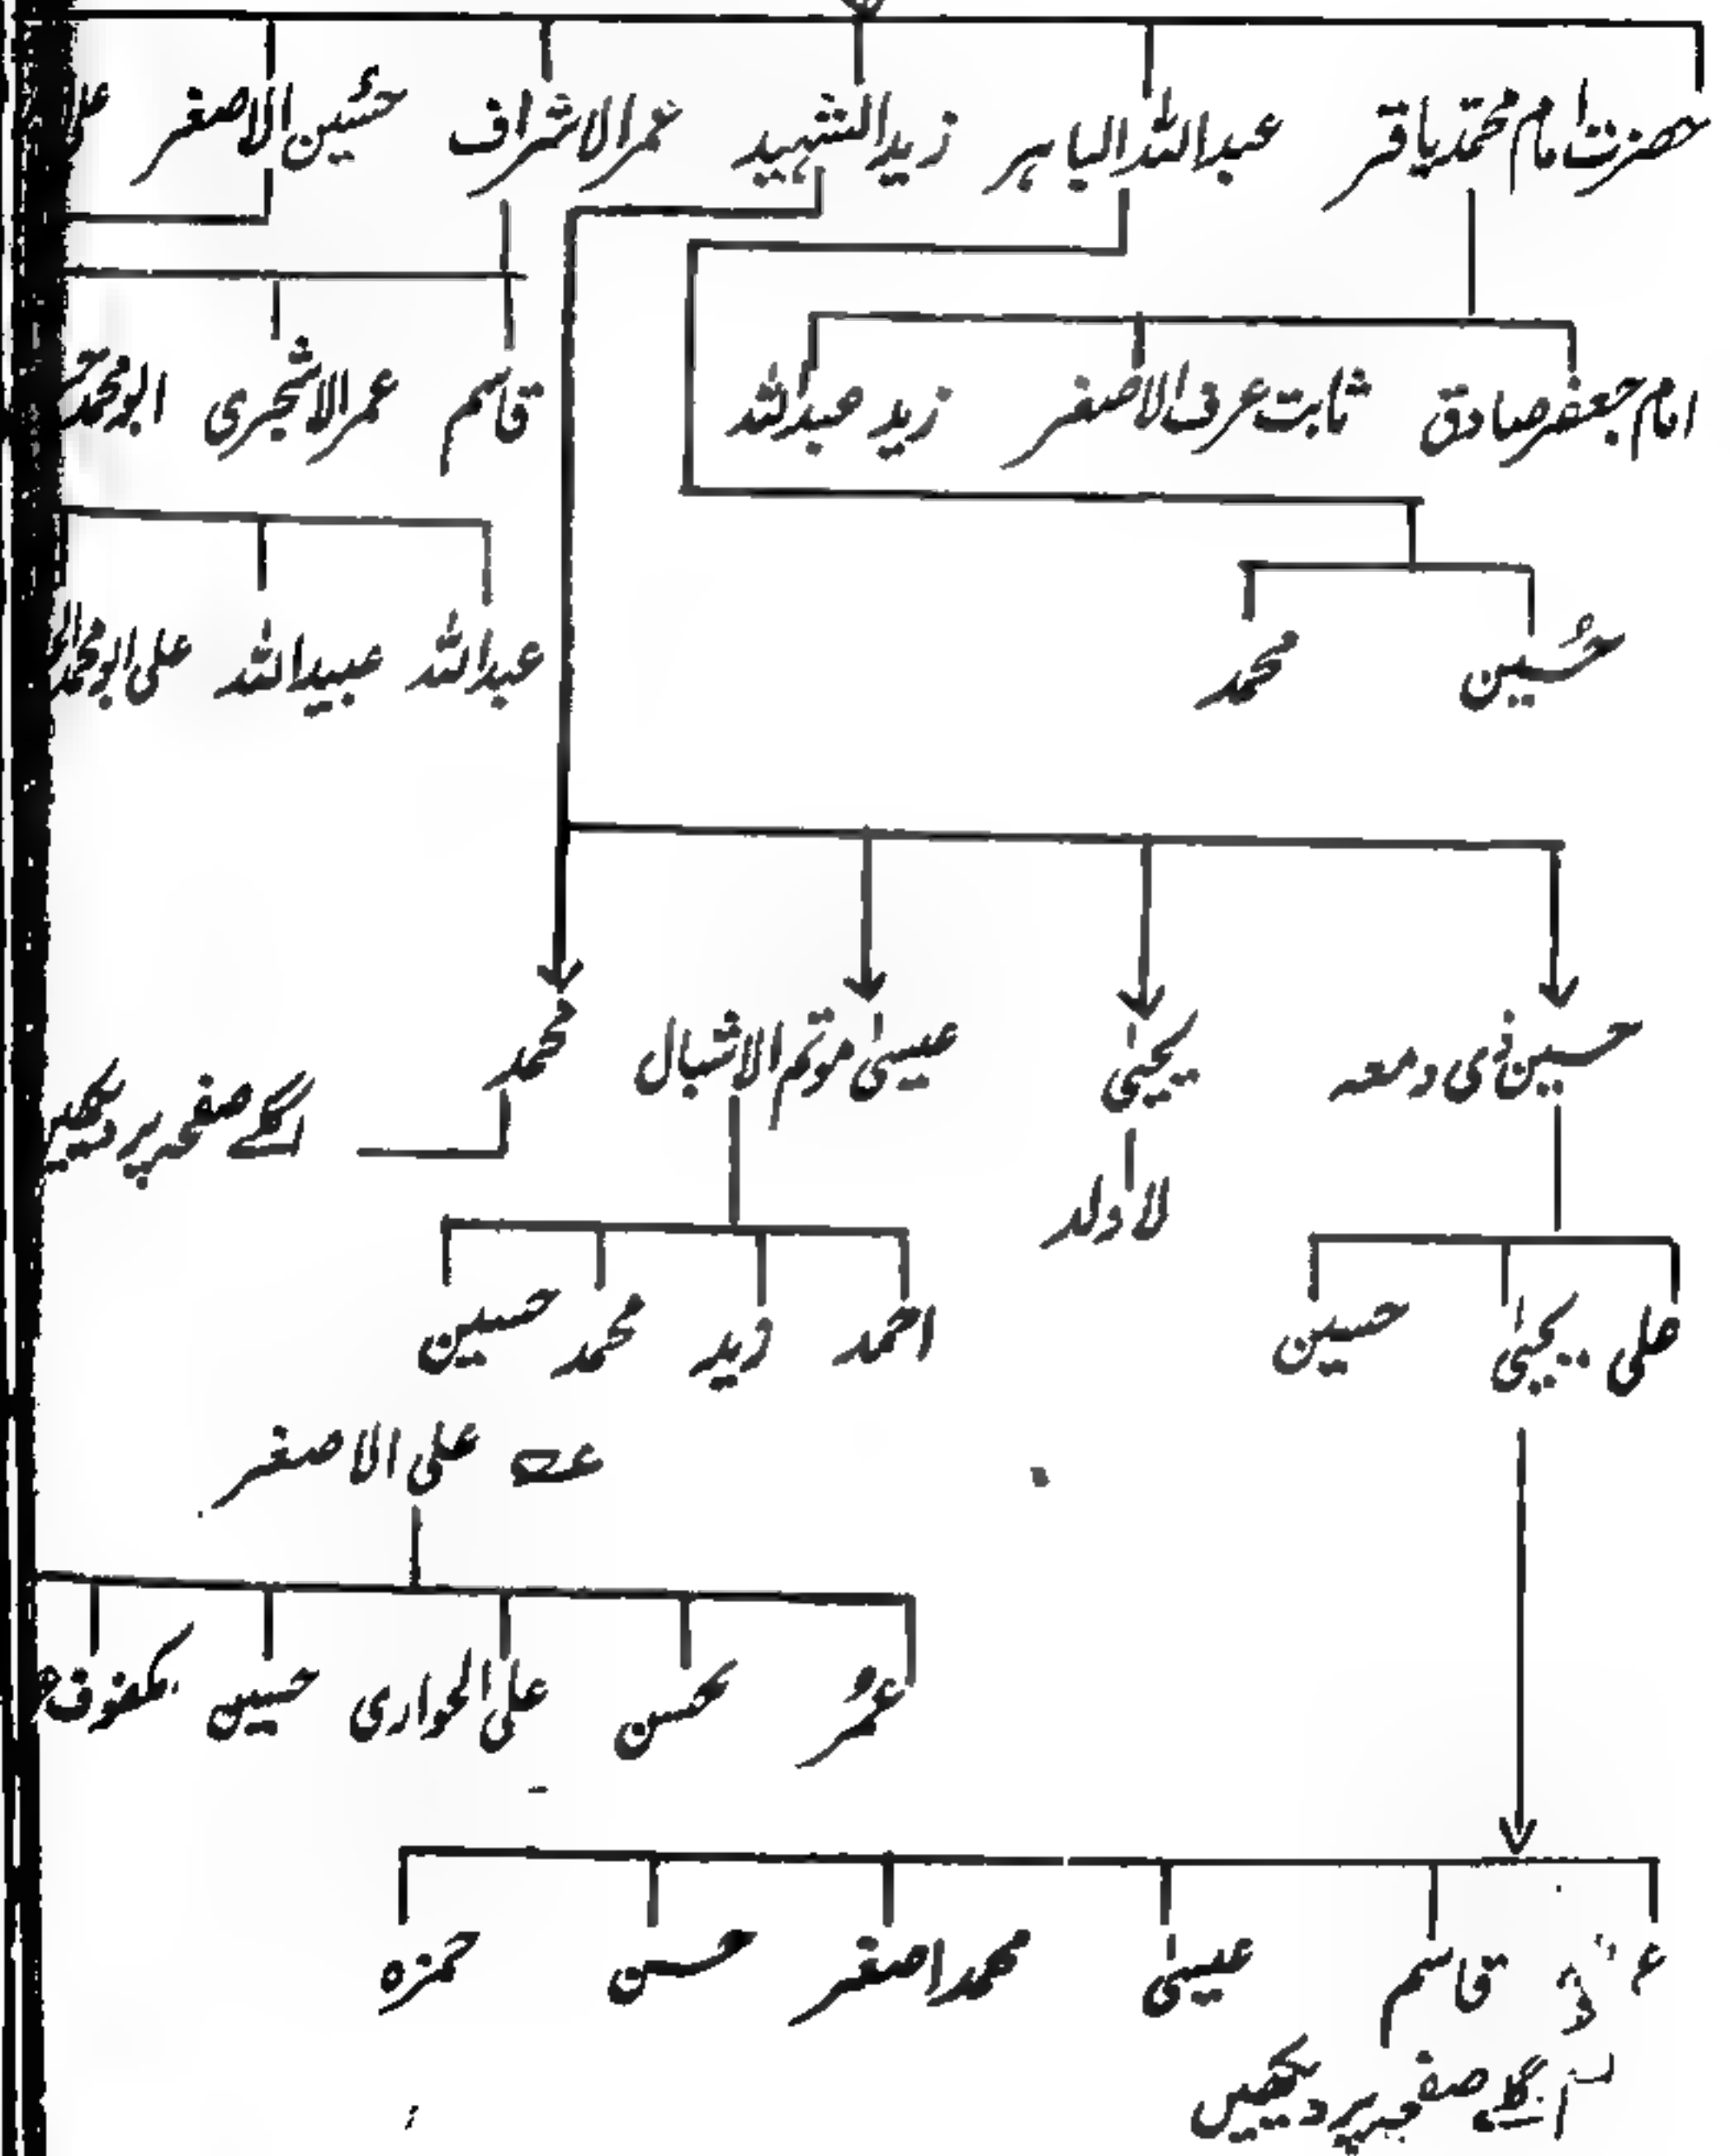 حضرت امام محمد باقر عبداللہ الباہر زید الشہید عمر الاشراف حسین الاصغر
امام جعفر صادق ثابت عرف الاصغر زید عبداللہ قاسم عمر الاشجری ابو محمد
حسین محمد عبداللہ عبیداللہ علی ابو محمد
حسین ذی دمعہ یحییٰ عیسیٰ موتم الاشبال محمد
لا ولد اگلے صفحہ پر دیکھیں
علی یحییٰ حسین احمد زید محمد حسین
علی الاصغر
عمر محسن علی الحواری حسین مکفوف
قاسم عیسیٰ محمد اصغر حسن حمزہ
اگلے صفحہ پر دیکھیں